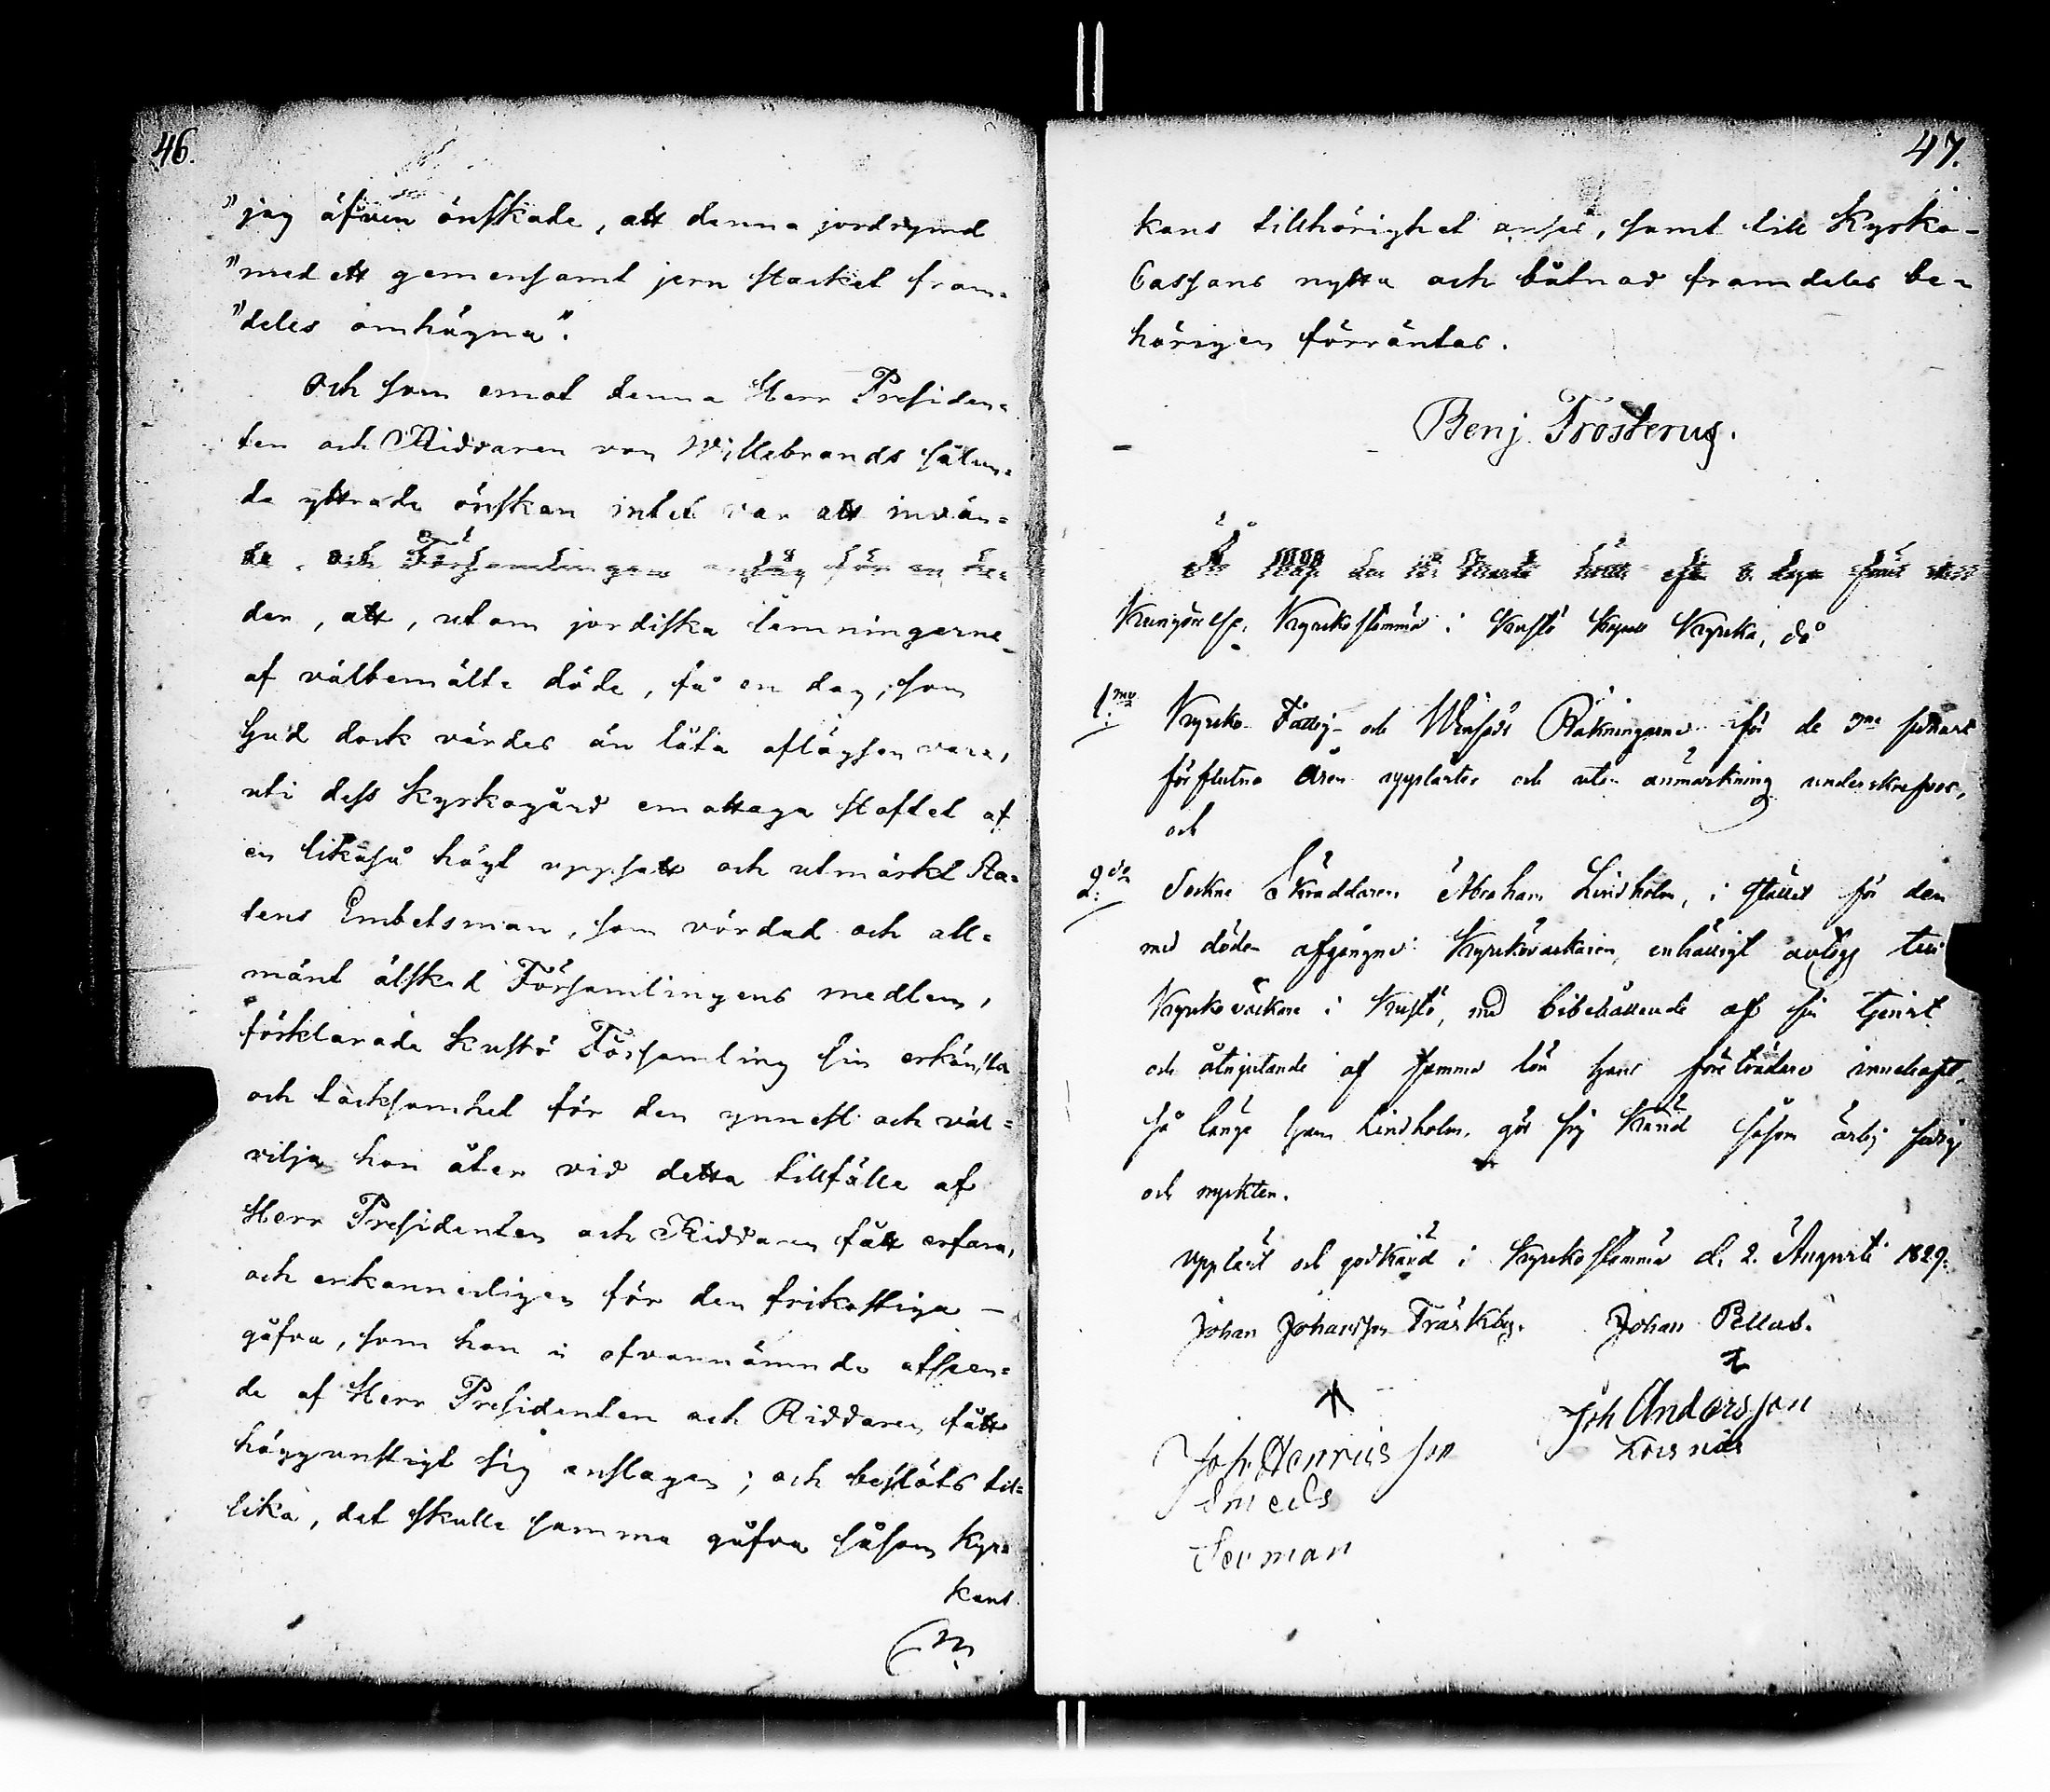 46.
"jag äfven önskade, att denna jordrymd
"med ett gemensamt jern stacket fram=
"deles omhägna".
Och som emot denna Herr Presiden=
ten och Riddaren von Willebrands sålun=
da yttrade önskan intet var att invän=
da, och Församlingen ansåg för en he=
der, att, utom jordiska lemningarne
af välbemälte döde, få en dag, som
Gud dock värdes än låta aflägsen vara,
uti dess Kyrkogård emottaga stoftet af
en likaså högt uppsatt och utmärkt Sta=
tens Embetsman, som vördad och all=
mänt älskad Församlingens medlem,
förklarade Kustö Församling sin erkänsla
och tacksamhet för den ynnest och väl=
vilja hon åter vid detta tillfälle af
Herr Presidenten och Riddaren fått erfara,
och erkannerligen för den frikostiga
gåfva, som hon i ofvannämnde afseen=
de af Herr Presidenten och Riddaren fått
höggunstigt sig anslagen; och beslöts til=
lika, det skulle samma gåfva såsom Kyr=
kans
47.
kans tillhörighet anses, samt till Kyrko-
Cassans nytta och båtnad framdeles be=
hörigen förräntas.
Benj. Frosterus.
Kungörelse, Kyrkostämma i Kustö Kapell Kyrka, då
1mo Kyrko- Fattig- och Räkningarne för de 3ne sednast
förflutna åren upplästes och utan anmärkning underskrefvos,
och
2do Sockne Skräddaren Abraham Lindholm, i stället för den
med döden afgångne Kyrkoväktaren, enhälligt antogs till
Kyrkoväktare i Kustö, med bibehållande af sin tjenst
och åtnjutande af samma lön hans företrädare innehaft,
så länge han Lindholm, gör sig känd såsom ärlig
och nyckter.
Uppläst och godkänd i Kyrkostämma d. 2. Augusti 1829.
Johan Johansson Träskby. Johan Pellas.
Joh Andersson
Joh. Henricsson